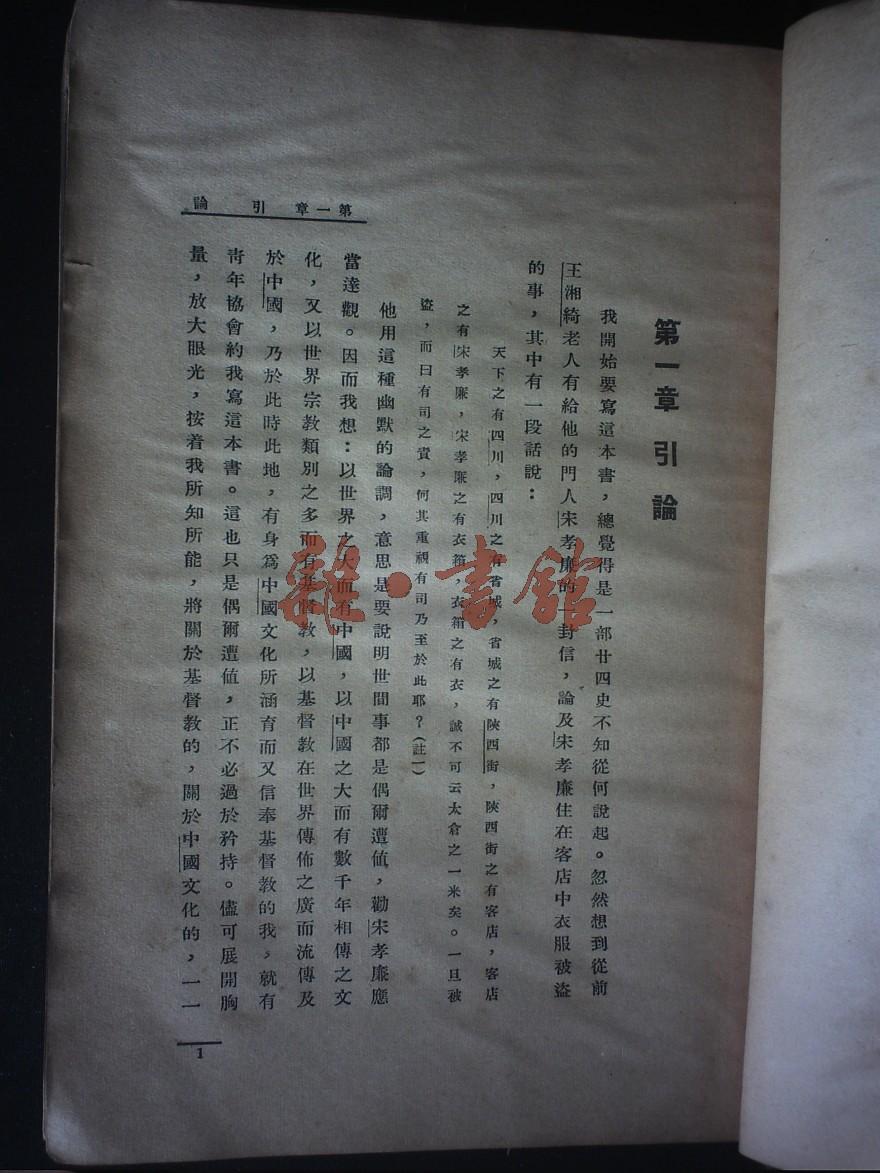 第一章 引論
第一章 引論
我開始要寫這本書，總覺得是一部廿四史不知從何說起。忽然想到從前
王湘綺老人有給他的門人宋孝廉的一封信，論及宋孝廉住在客店中衣服被盜
的事，其中有一段話說：
天下之有四川，四川之有省城，省城之有陝西街，陝西街之有客店，客店
之有宋孝廉，宋孝廉之有衣箱，衣箱之有衣，誠不可云太倉之一米矣。一旦被
盜，而曰有司之責，何其重視有司乃至於此耶？（註一）
他用這種幽默的論調，意思是要說明世間事都是偶爾遭値，勸宋孝廉應
當達觀。因而我想：以世界之大而有中國，以中國之大而有數千年相傳之文
化，又以世界宗教類別之多而有基督教，以基督教在世界傳佈之廣而流傳及
於中國，乃於此時此地，有身爲中國文化所涵育而又信奉基督教的我，就有
靑年協會約我寫這本書。這也只是偶爾遭値，正不必過於矜持。儘可展開胸
量，放大眼光，按着我所知所能，將關於基督教的，關於中國文化的，一一
1
雜·書館